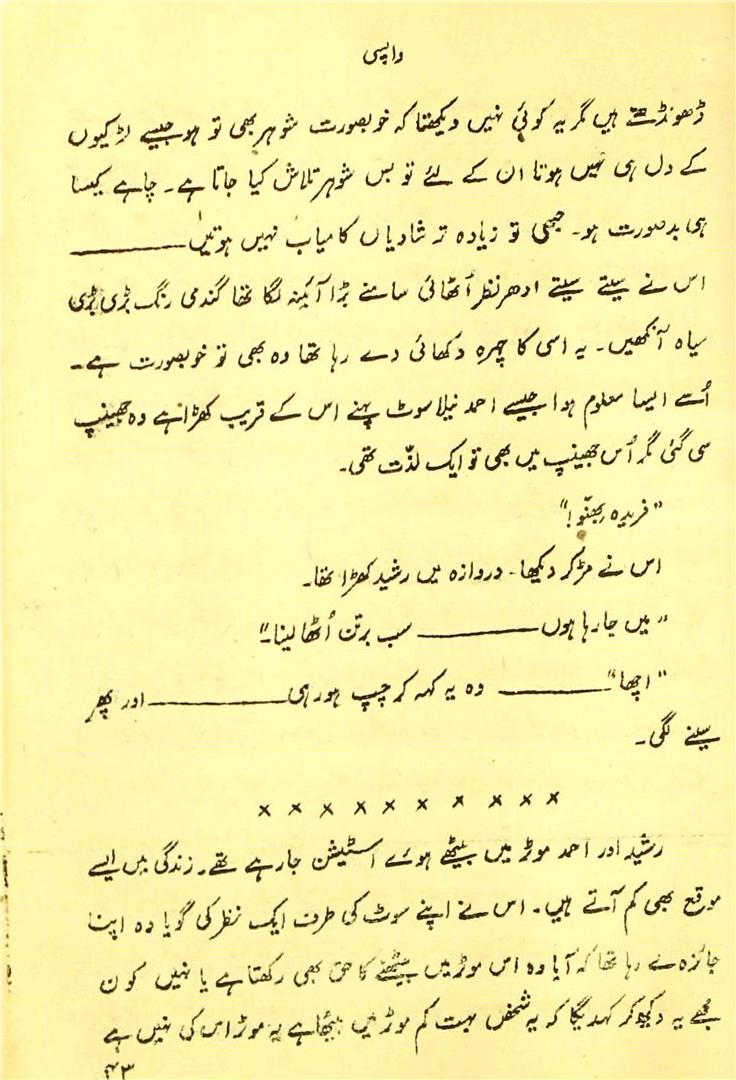 واپسی
ڈھونڈتے ہیں مگر یہ کوئی نہیں دیکھتا کہ خوبصورت شوہر بھی تو ہو جیسے لڑکیوں
کے دل ہی نہیں ہوتا ان کے لئے تو بس شوہر تلاش کیا جاتا ہے۔ چاہے کیسا
ہی بدصورت ہو۔ جبھی تو زیادہ تر شادیاں کامیاب نہیں ہوتیں ————
اس نے سیتے سیتے ادھر نظر اُٹھائی سامنے بڑا آئینہ لگا تھا گندمی رنگ بڑی بڑی
سیاہ آنکھیں۔ یہ اسی کا چہرہ دکھائی دے رہا تھا وہ بھی تو خوبصورت ہے۔
اُسے ایسا معلوم ہوا جیسے احمد نیلا سوٹ پہنے اس کے قریب کھڑا ہے وہ جھینپ
سی گئی مگر اُس جھینپ میں بھی تو ایک لذّت تھی۔
"فریدہ بھنّو!"
اس نے مڑ کر دیکھا۔ دروازہ میں رشید کھڑا تھا۔
"میں جا رہا ہوں ———— سب برتن اُٹھا لینا۔"
"اچھا" ———— وہ یہ کہہ کر چپ ہو رہی ———— اور پھر
سینے لگی۔
× × × × × × × × × ×
رشید اور احمد موٹر میں بیٹھے ہوئے اسٹیشن جا رہے تھے۔ زندگی میں ایسے
موقع بھی کم آتے ہیں۔ اس نے اپنے سوٹ کی طرف ایک نظر کی گویا وہ اپنا
جائزہ لے رہا تھا کہ آیا وہ اس موٹر میں بیٹھنے کا حق بھی رکھتا ہے یا نہیں کون
مجھے یہ دیکھ کر کہدیگا کہ یہ شخص بہت کم موٹر میں بیٹھا ہے یہ موٹر اس کی نہیں ہے
۴۳